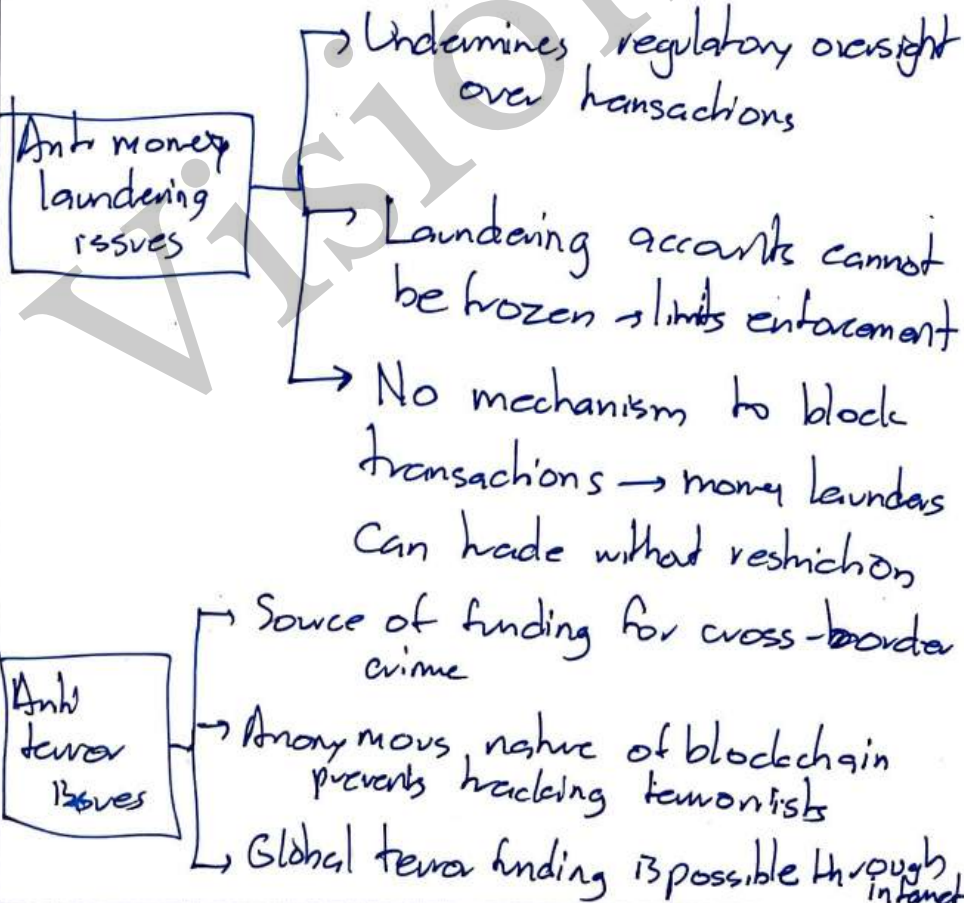 Anti money
laundering
issues
→ Undermines regulatory oversight
over transactions
→ Laundering accounts cannot
be frozen → limits enforcement
→ No mechanism to block
transactions → money launders
can trade without restriction
Anti
terror
issues
→ Source of funding for cross-border
crime
→ Anonymous nature of blockchain
prevents tracking terrorists
→ Global terror funding is possible through
Vision